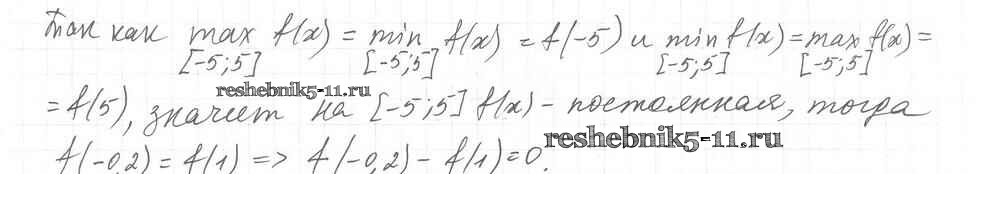 Так как max f(x) = min f(x) = f(-5) и min f(x) = max f(x) =
[-5;5] [-5;5] [-5;5] [-5;5]
reshebnik5-11.ru
= f(5), значит на [-5;5] f(x) - постоянная, тогда
reshebnik5-11.ru
f(-0,2) = f(1) => f(-0,2) - f(1) = 0.